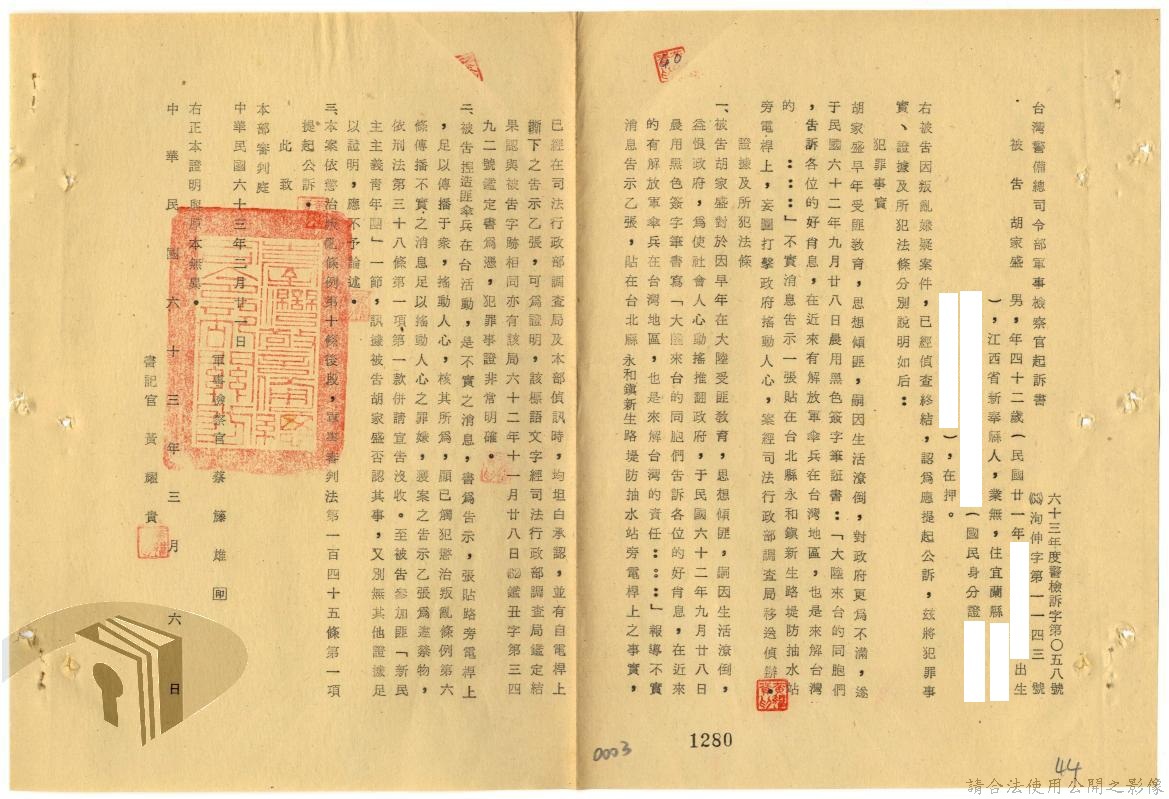 台灣警備總司令部軍事檢察官起訴書
六十三年度警檢訴字第〇五八號
洵伸字第一一四三號
被告 胡家盛 男，年四十二歲（民國廿一年
出生
），江西省新奉縣人，業無，住宜蘭縣
（國民身分證
），在押。
右被告因叛亂嫌疑案件，已經偵查終結，認為應提起公訴，茲將犯罪事
實、證據及所犯法條分別說明如后：
犯罪事實
胡家盛早年受匪教育，思想傾匪，嗣因生活潦倒，對政府更為不滿，遂
于民國六十二年九月廿八日晨用黑色簽字筆誑書：「大陸來台的同胞們
，告訴各位的好肖息，在近來有解放軍傘兵在台灣地區，也是來解台灣
的：：：：」不實消息告示一張貼在台北縣永和鎮新生路堤防抽水站
旁電桿上，妄圖打擊政府搖動人心，案經司法行政部調查局移送偵辦。
證據及所犯法條
一、被告胡家盛對於因早年在大陸受匪教育，思想傾匪，嗣因生活潦倒，
益恨政府，為使社會人心動搖推翻政府，于民國六十二年九月廿八日
晨用黑色簽字筆書寫「大陸來台的同胞們告訴各位的好肖息，在近來
的有解放軍傘兵在台灣地區，也是來解台灣的責任：：：」報導不實
消息告示乙張，貼在台北縣永和鎮新生路堤防抽水站旁電桿上之事實，
已經在司法行政部調查局及本部偵訊時，均坦白承認，並有自電桿上
撕下之告示乙張，可為證明，該標語文字經司法行政部調查局鑑定結
果認與被告字跡相同亦有該局六十二年十一月廿八日鑑丑字第三四
九二號鑑定書為憑，犯罪事證非常明確。
二、被告捏造匪傘兵在台活動，是不實之消息，書為告示，張貼路旁電桿上
，足以傳播于衆，搖動人心，核其所為，顯已觸犯懲治叛亂條例第六
條傳播不實之消息足以搖動人心之罪嫌，襄案之告示乙張為違禁物，
依刑法第三十八條第一項第一款併請宣告沒收。至被告參加匪「新民
主主義青年團」一節，訊據被告胡家盛否認其事，又別無其他證據足
以證明，應不予論述。
三、本案依懲治叛亂條例第十條後段，軍事審判法第一百四十五條第一項
提起公訴。
此致
本部審判庭
中華民國六十三年三月廿一日
軍事檢察官 蔡籐雄 印
右正本證明與原本無異。
中華民國六十三年三月六日
書記官 黃耀貴
1280
0003
44
40
請合法使用公開之影像